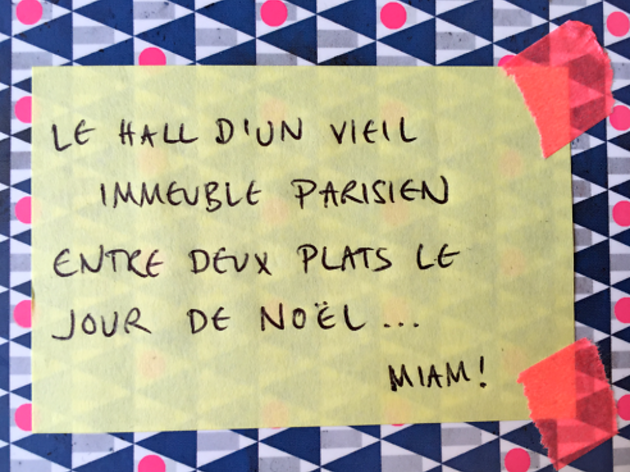 LE HALL D'UN VIEIL
IMMEUBLE PARISIEN
ENTRE DEUX PLATS LE
JOUR DE NOËL...
MIAM!